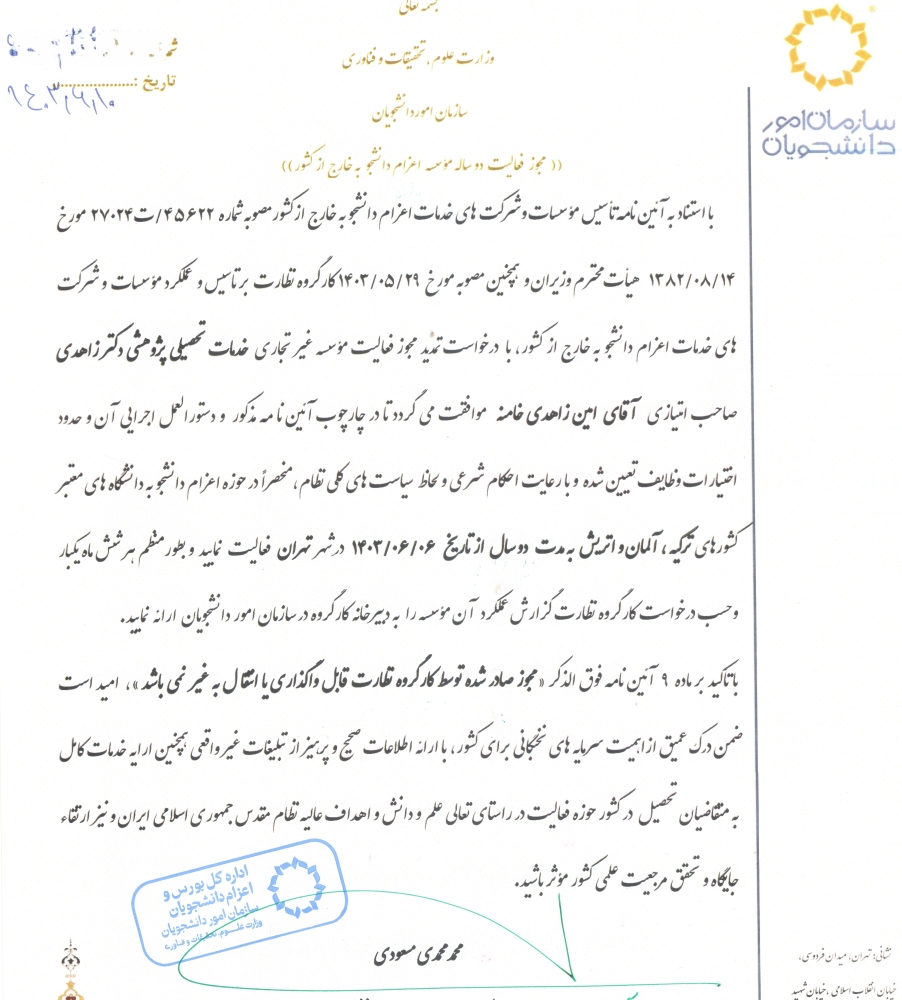 بسمه تعالی
وزارت علوم، تحقیقات و فناوری
سازمان امور دانشجویان
(( مجوز فعالیت دو ساله مؤسسه اعزام دانشجو به خارج از کشور ))
تاریخ :
۱۴۰۳/۶/۱۰
سازمان امور
دانشجویان
با استناد به آئین نامه تأسیس مؤسسات و شرکت های خدمات اعزام دانشجو به خارج از کشور مصوبه شماره ۴۵۶۲۲/ت۲۷۰۲۴ مورخ
۱۳۸۲/۰۸/۱۴ هیأت محترم وزیران و همچنین مصوبه مورخ ۱۴۰۳/۰۵/۲۹ کارگروه نظارت بر تاسیس و عملکرد مؤسسات و شرکت
های خدمات اعزام دانشجو به خارج از کشور، با درخواست تمدید مجوز فعالیت مؤسسه غیر تجاری خدمات تحصیلی پژوهشی دکتر زاهدی
صاحب امتیازی آقای امین زاهدی خامنه موافقت می گردد تا در چارچوب آئین نامه مذکور و دستورالعمل اجرایی آن و حدود
اختیارات وظایف تعیین شده و با رعایت احکام شرعی و لحاظ سیاست های کلی نظام، منحصراً در حوزه اعزام دانشجو به دانشگاه های معتبر
کشورهای ترکیه، آلمان و اتریش به مدت دو سال از تاریخ ۱۴۰۳/۰۶/۰۶ در شهر تهران فعالیت نمایید و بطور منظم هر شش ماه یکبار
و حسب درخواست کارگروه نظارت گزارش عملکرد آن مؤسسه را به دبیرخانه کارگروه در سازمان امور دانشجویان ارائه نمایید.
با تاکید بر ماده ۹ آئین نامه فوق الذکر «مجوز صادر شده توسط کارگروه نظارت قابل واگذاری یا انتقال به غیر نمی باشد»، امید است
ضمن درک عمیق از اهمیت سرمایه های نخبگانی برای کشور، با ارائه اطلاعات صحیح و پرهیز از تبلیغات غیر واقعی همچنین ارایه خدمات کامل
به متقاضیان تحصیل در کشور حوزه فعالیت در راستای تعالی علم و دانش و اهداف عالیه نظام مقدس جمهوری اسلامی ایران و نیز ارتقاء
جایگاه و تحقق مرجعیت علمی کشور مؤثر باشید.
اداره کل بورس و
اعزام دانشجویان
سازمان امور دانشجویان
وزارت علوم، تحقیقات و فناوری
محمد محمدی مسعودی
نشانی: تهران، میدان فردوسی،
خیابان انقلاب اسلامی، خیابان شهید